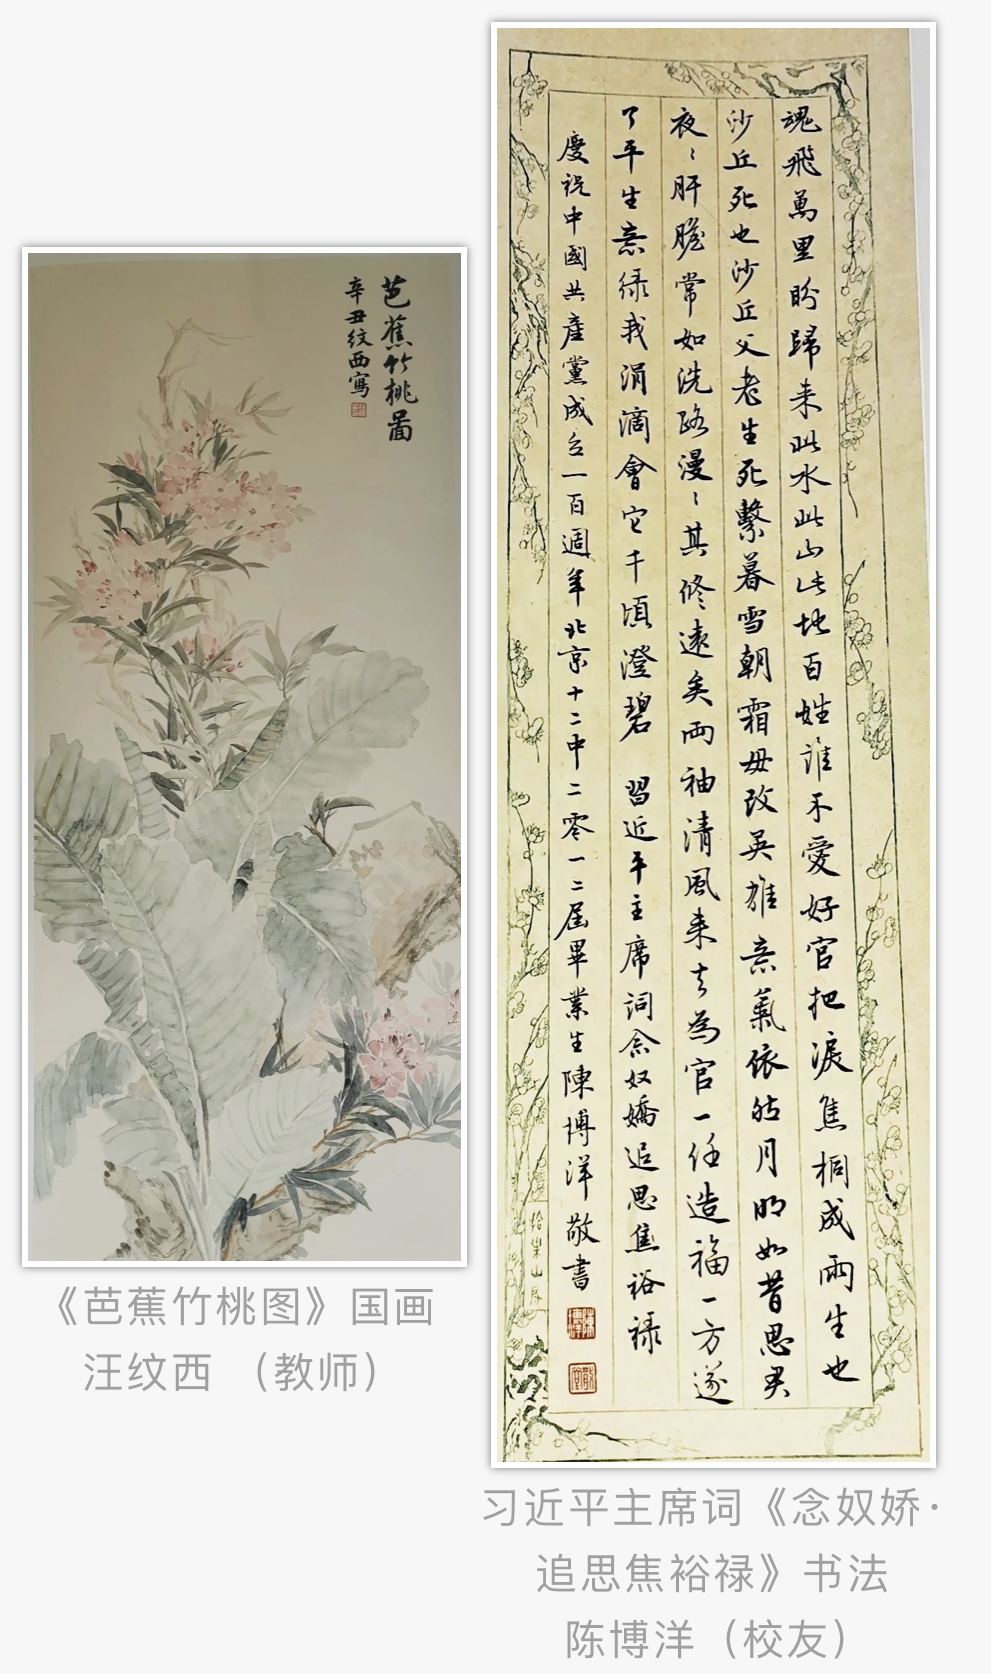 芭蕉竹桃圖
辛丑纹西寫
《芭蕉竹桃图》国画
汪纹西 （教师）
魂飛萬里盼歸来此水此山此地百姓誰不愛好官把淚焦桐成雨生也
沙丘死也沙丘父老生死繫暮雪朝霜毋改英雄意氣依然月明如昔思君
夜〻肝膽常如洗路漫〻其修遠矣両袖清風来去為官一任造福一方遂
了平生意绿我涓滴會它千頃澄碧 習近平主席詞念奴嬌追思焦裕禄
慶祝中國共産黨成立一百週年北京十二中二零一二届畢業生陳博洋敬書
习近平主席词《念奴娇·
追思焦裕禄》书法
陈博洋（校友）